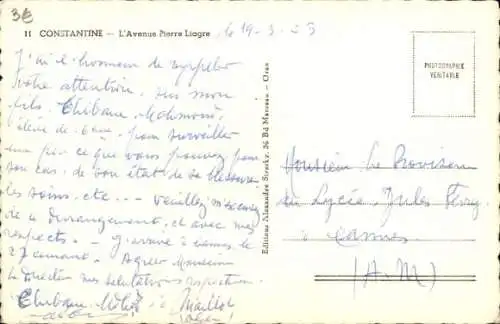 3€
11 CONSTANTINE – L'Avenue Pierre Liagre
le 19-3-53
J'ai l'honneur de rappeler
votre attention sur mon
fils, Chibane Mahmoud
élève de pour surveiller
un peu ce que vous pouvez pour
son cas, de son état de sa blessure
les soins, etc... veuillez m'excusez
de ce dérangement, et avec mes
respects. – J'arrive à Cannes le
27 courant. Agréer Monsieur
Le Directeur mes salutations respectueuses
Chibane à Maillot
PHOTOGRAPHIE
VÉRITABLE
Editions Alexandre Sirecky, 36 Bd Marceau - Oran
Monsieur Le Proviseur
du Lycée Jules Ferry
à Cannes
(A-M)